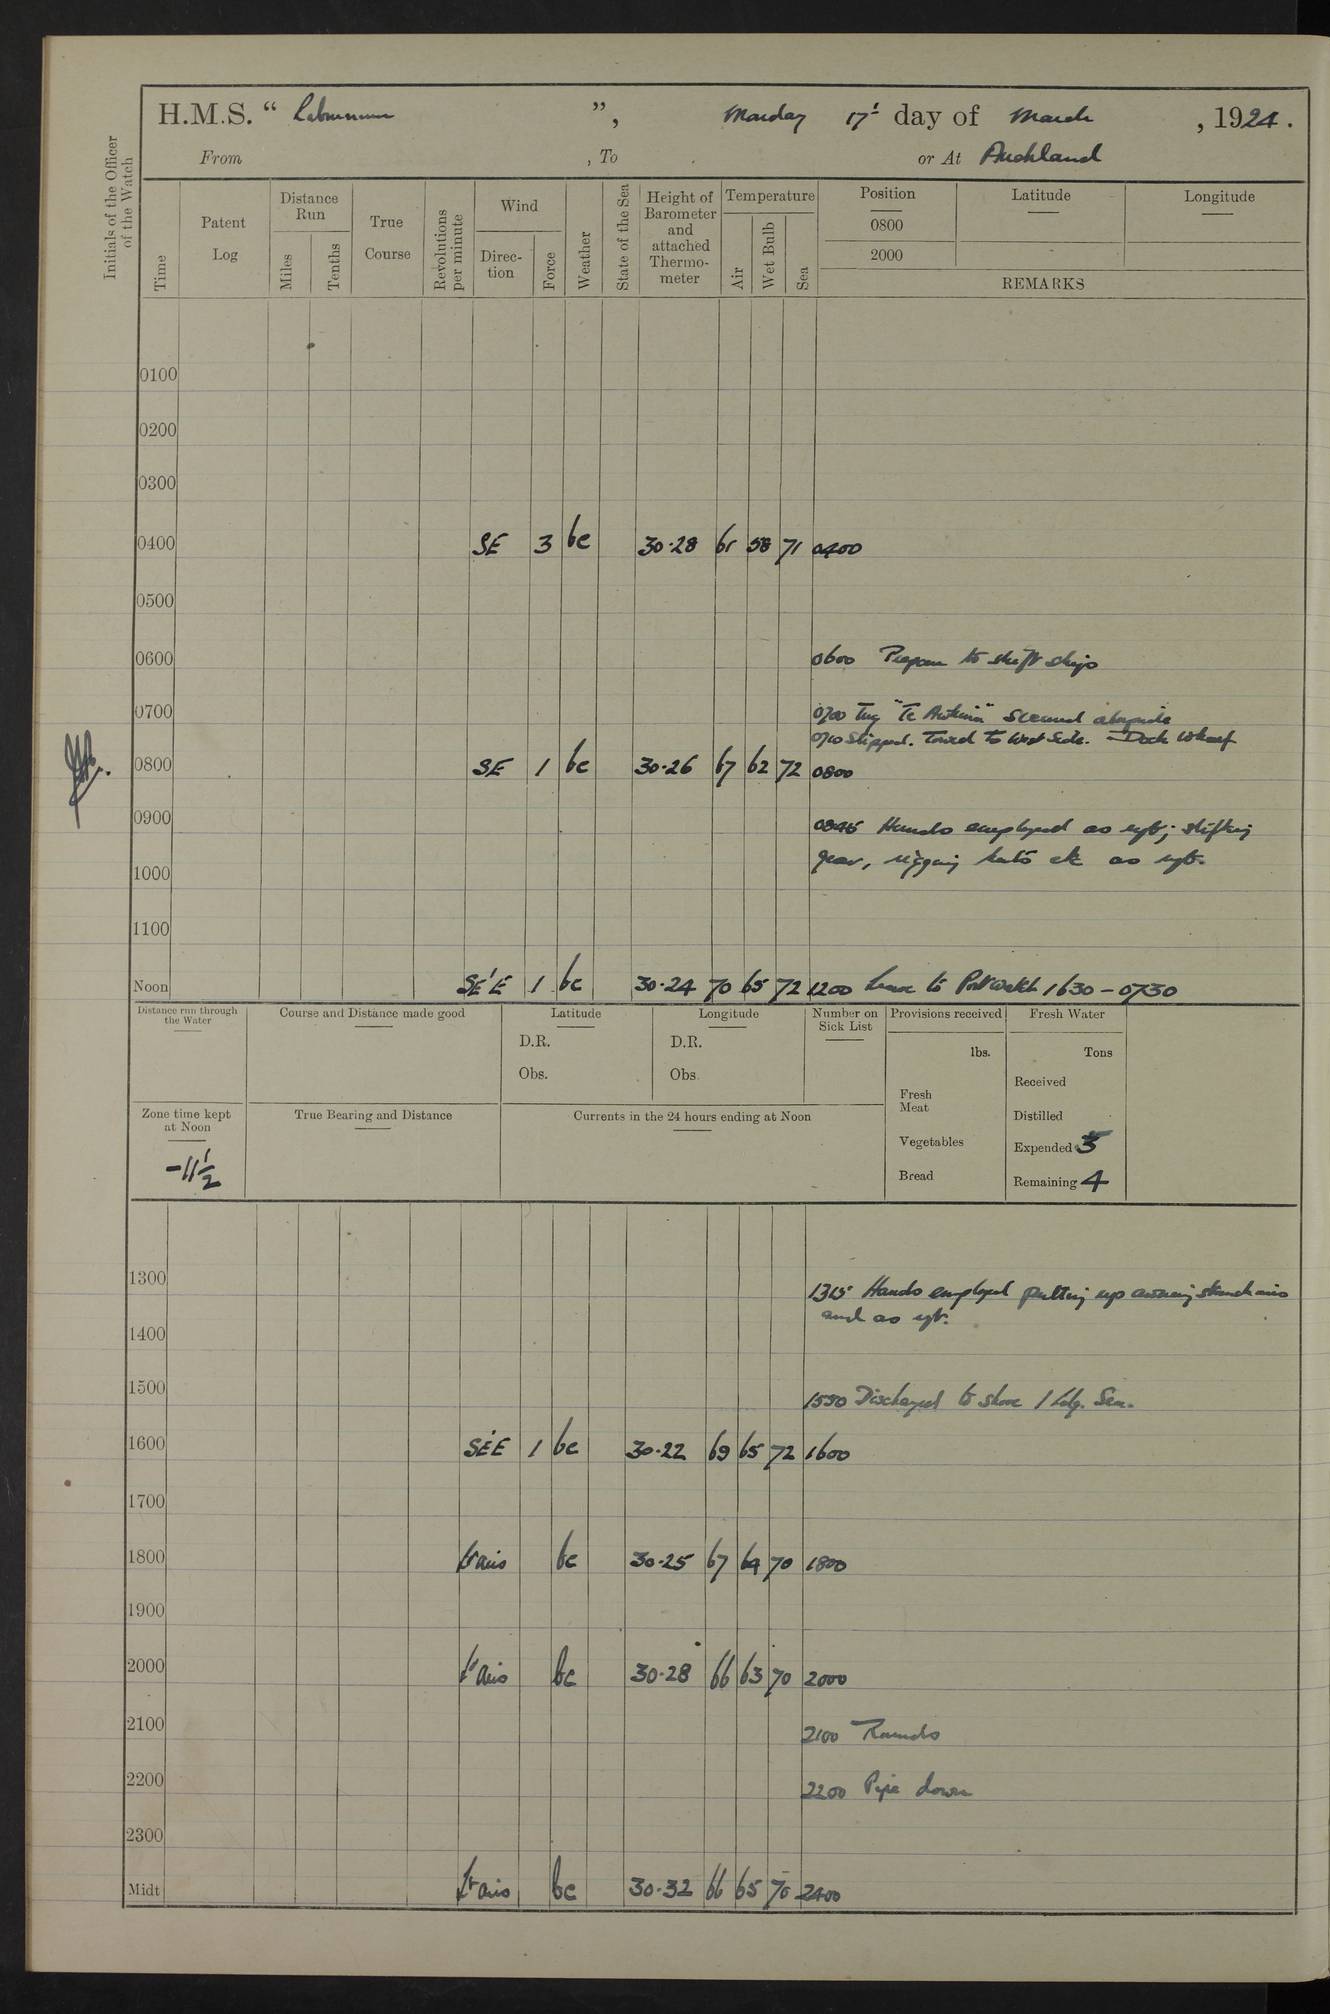 H.M.S. “ Laburnum ”, Monday 17th day of March , 1924.
From , To or At Auckland
Initials of the Officer
of the Watch
Time
Patent
Log
Distance
Run
Miles
Tenths
True
Course
Revolutions
per minute
Wind
Direc-
tion
Force
Weather
State of the Sea
Height of
Barometer
and
attached
Thermo-
meter
Temperature
Air
Wet Bulb
Sea
Position Latitude Longitude
0800
2000
REMARKS
0100
0200
0300
0400 SE 3 bc 30.28 61 58 71 0400
0500
0600 0600 Prepare to shift ship
0700 0700 Tug "Te Awhina" secured alongside
0710 Slipped. Towed to West Side. Dock Wharf
0800 SE 1 bc 30.26 67 62 72 0800
0900 0845 Hands employed as reqt; shifting
gear, rigging etc as reqt.
1000
1100
Noon SE'E 1 bc 30.24 70 65 72 1200 Leave to Port watch 1630 - 0730
Distance run through
the Water
Course and Distance made good
Latitude
D.R.
Obs.
Longitude
D.R.
Obs.
Number on
Sick List
Provisions received
lbs.
Fresh
Meat
Vegetables
Bread
Fresh Water
Tons
Received
Distilled
Expended 5
Remaining 4
Zone time kept
at Noon
-11½
True Bearing and Distance
Currents in the 24 hours ending at Noon
1300 1315 Hands employed putting up awning stanchions
and as reqt.
1400
1500 1550 Discharged to shore 1 Ldg. Sea.
1600 SE'E 1 bc 30.22 69 65 72 1600
1700
1800 Lt airs bc 30.25 67 64 70 1800
1900
2000 Lt airs bc 30.28 66 63 70 2000
2100 2100 Rounds
2200 2200 Pipe down
2300
Midt Lt airs bc 30.32 66 65 70 2400